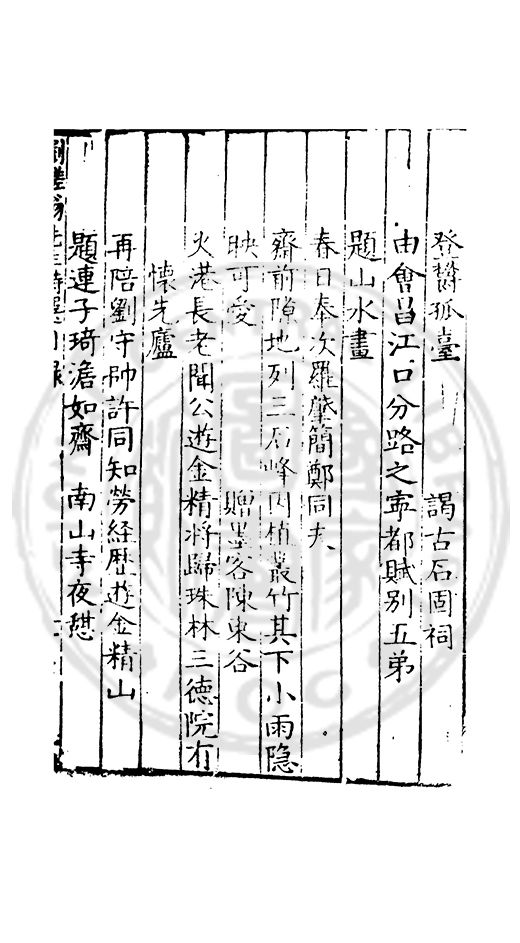 登鬱孤臺　謁古石固祠
由會昌江口分路之寕都賦别五弟
題山水畫
春日奉次羅肇簡鄭同夫
齋前隙地列三石峰因植叢竹其下小雨隐
映可愛　贈墨客陳東谷
火港長老聞公遊金精將歸珠林三德院有
懷先廬
再陪劉守帥許同知勞経歷遊金精山
題連子琦澹如齋　南山寺夜憇
劉槎翁先生詩選目録